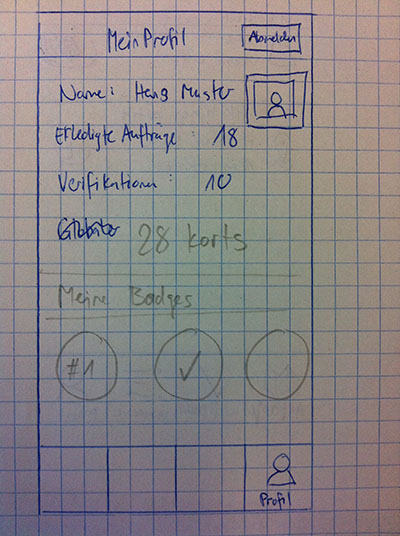 Mein Profil Abmelden
Name: Hans Muster
Erledigte Aufträge: 18
Verifikationen: 10
28 Korts
Meine Badges
#1 ✓
Profil